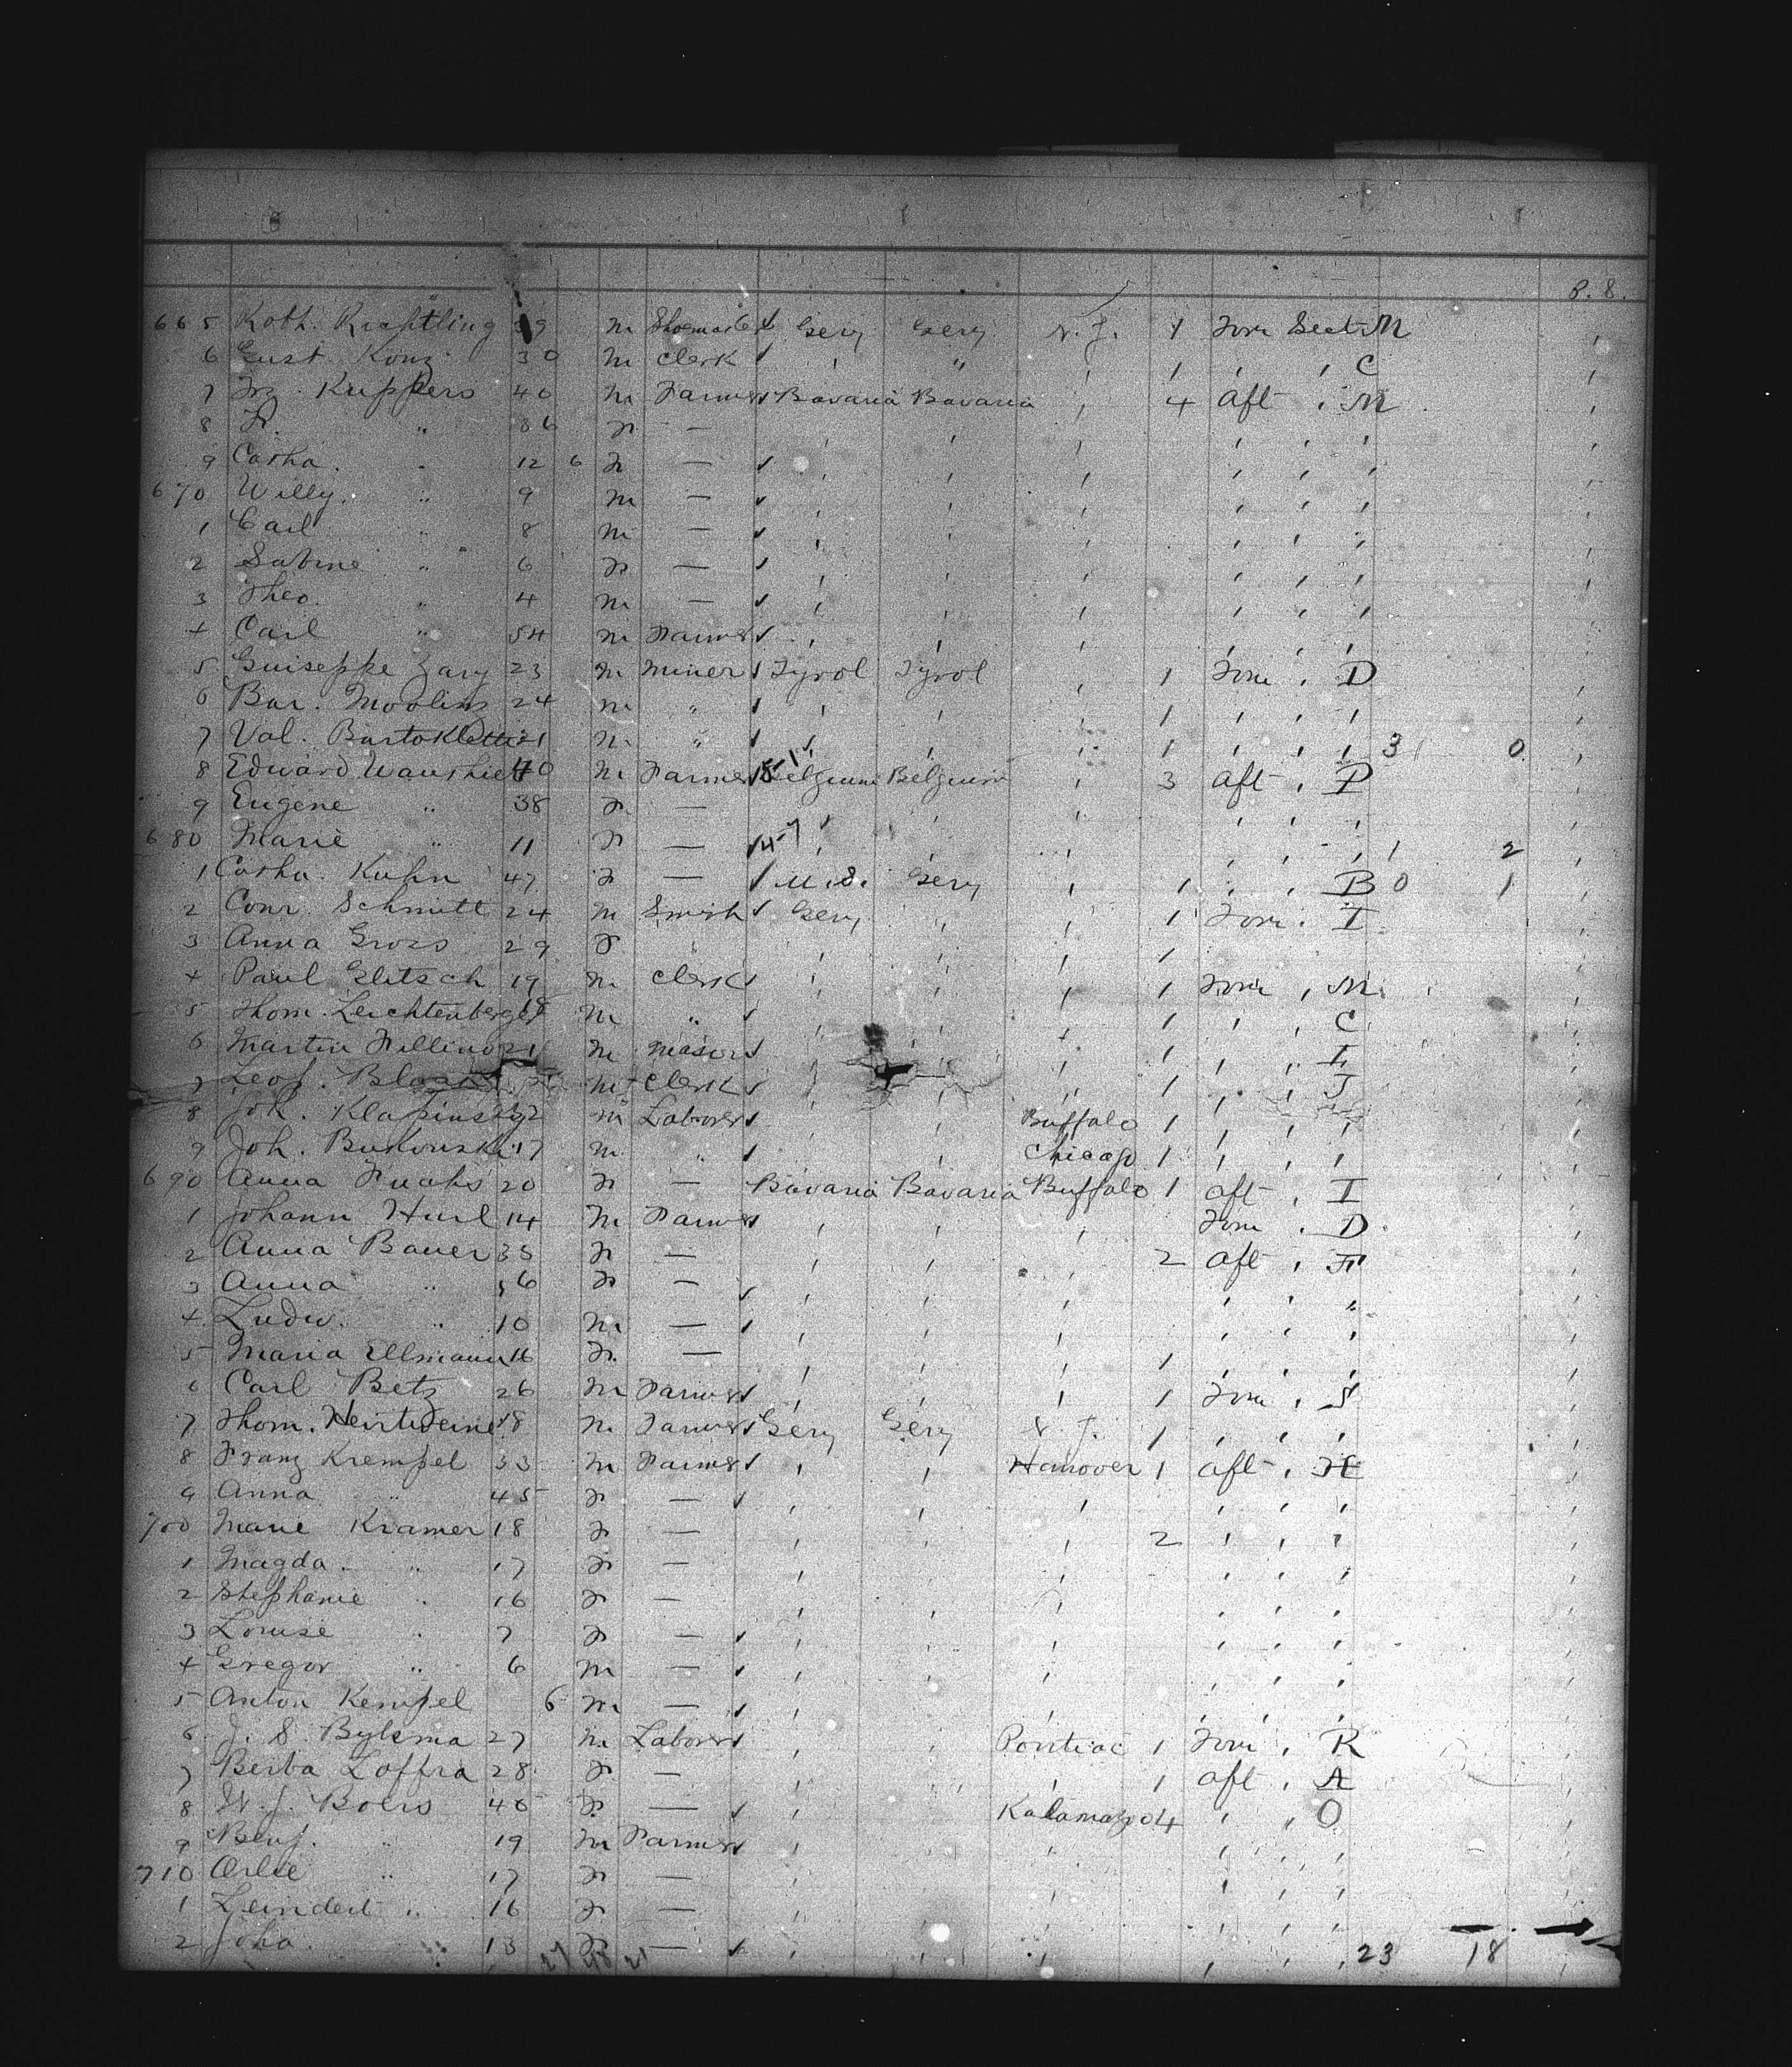 P. 8.
665 Kath. Kuestling 39 m Shoemaker Gery Gery N.J. 1 Forw Sect M
6 Gust. Konz 30 m Clerk , " , 1 , , C
7 Frz. Kuppers 40 m Farmer Bavaria Bavaria , 4 aft , M
8 F. " 36 F — , , , , , ,
9 Catha. " 12 6 F — , , , , , ,
670 Willy " 9 m — , , , , , ,
1 Carl " 8 m — , , , , , ,
2 Sabine " 6 F — , , , , , ,
3 Theo. " 4 m — , , , , , ,
4 Carl " 54 m Farmer , , , , , ,
5 Guiseppe Zary 23 m Miner Tyrol Tyrol , 1 Forw , D
6 Bar. Moolins 24 m " , , , 1 , , ,
7 Val. Bartokletti 21 m " , , , 1 , , , 3 0
8 Edward Wauthiet 40 m Farmer Belgium Belgium , 3 aft , P
9 Eugene " 38 F — , , , , , ,
680 Marie " 11 F — , , , , , , 1 2
1 Catha. Kuhn 47 F — U.S. Gery , 1 , , B 0 1
2 Conr. Schmitt 24 m Smith Gery , , 1 Forw , I
3 Anna Gross 29 F , , , 1
4 Paul Glitsch 19 m Clerk , , , 1 Forw , M
5 Thom. Leichtenberger 18 m " , , , 1 , , C
6 Martin Fellino 21 m Mason , , , 1 , , I
7 Leop. m Clerk , , , 1 , , J
8 Joh. Klapinsky 22 m Laborer , , Buffalo 1 , , ,
9 Joh. Bukowski 17 m " , , Chicago 1 , , ,
690 Anna Fuchs 20 F — Bavaria Bavaria Buffalo 1 aft , I
1 Johann Hurl 14 m Farmer , , , Forw , D
2 Anna Bauer 35 F — , , , 2 aft , F
3 Anna " 6 F — , , , , , "
4 Ludw. " 10 m — , , , , , ,
5 Maria Ellmann 16 F — , , , 1 , , ,
6 Carl Betz 26 m Farmer , , , 1 Forw , S
7 Thom. 18 m Farmer Gery Gery N.J. 1 , , ,
8 Franz Krempel 33 m Farmer , , Hanover 1 aft , H
9 Anna " 45 F — , , , , , ,
700 Marie Kramer 18 F — , , , 2 , , ,
1 Magda. " 17 F — , , , , , ,
2 Stephanie " 16 F — , , , , , ,
3 Louise " 7 F — , , , , , ,
4 Gregor " 6 m — , , , , , ,
5 Anton Kempel 6 m — , , , , , ,
6 J. S. Bylsma 27 m Laborer , , Pontiac 1 Forw , R
7 Berba Loffra 28 F — , , , 1 aft , A
8 W. J. Boers 46 F — , , Kalamazoo 4 , , O
9 Benj. " 19 m Farmer , , , , , ,
710 " 17 F — , , , , , ,
1 Leindert " 16 F — , , , , , ,
2 Joha. " 13 F — , , , , , , 23 18